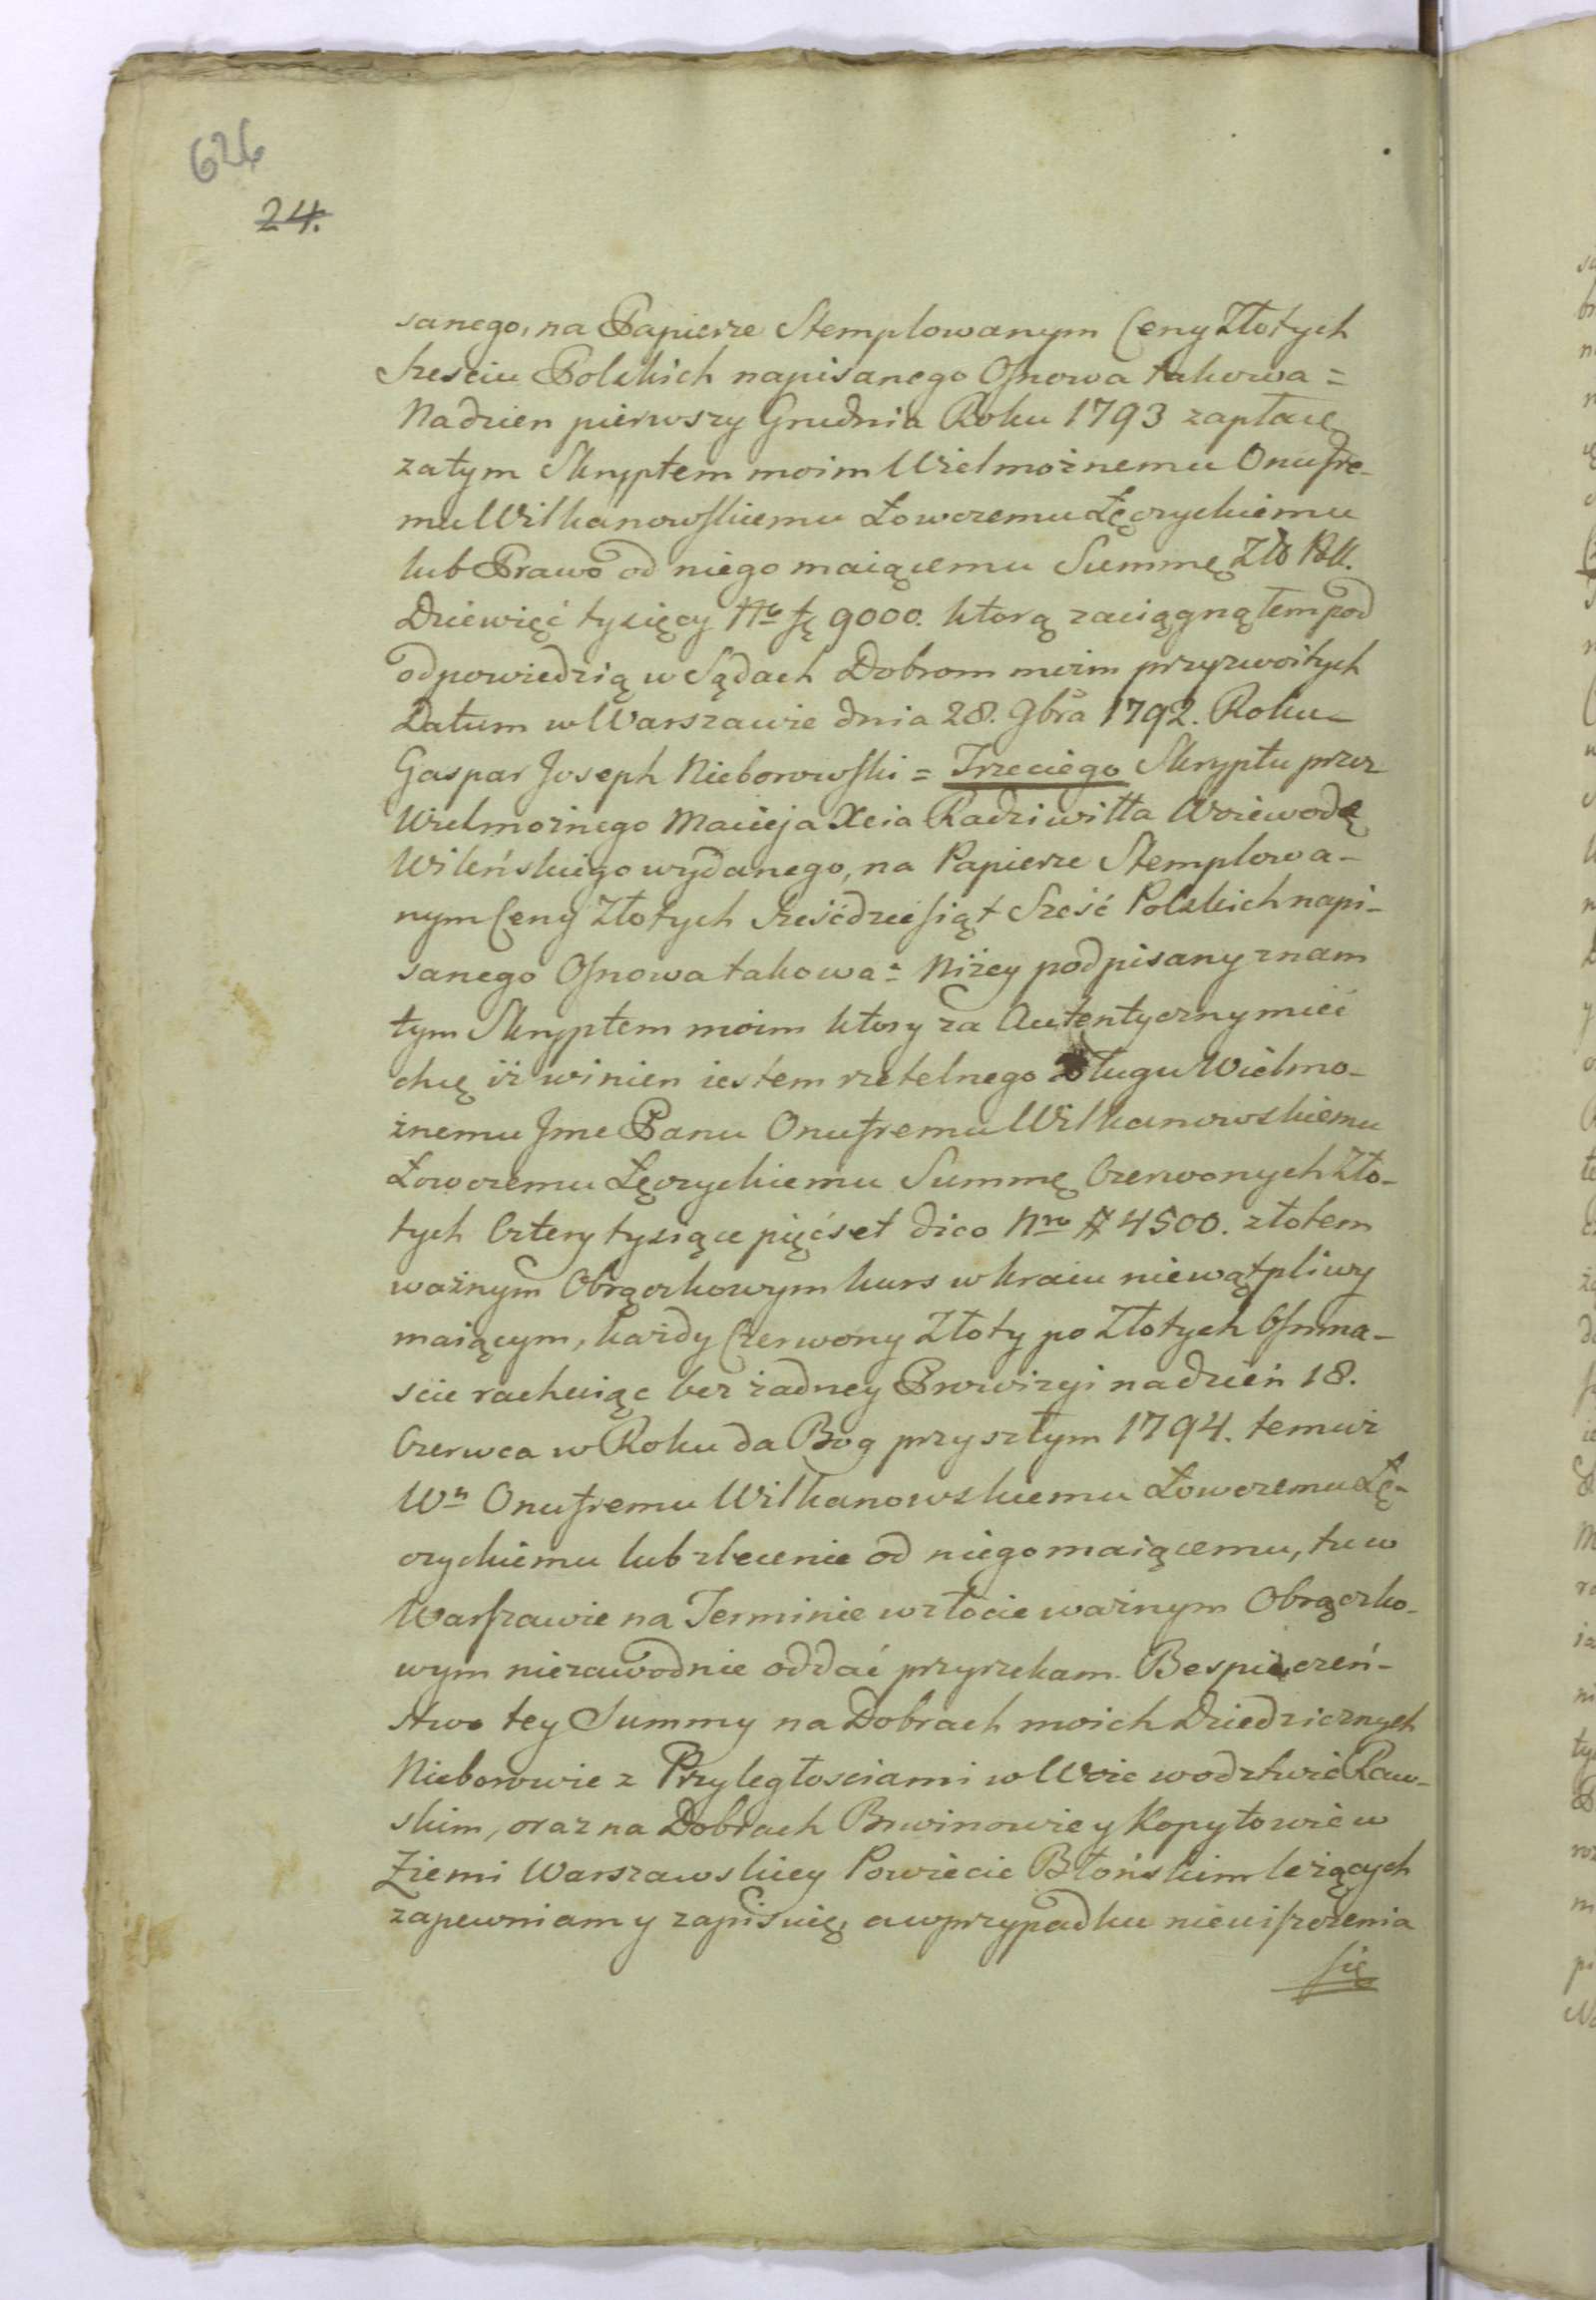 626
24.
sanego, na Papierze Stemplowanym Ceny Złotych
Szesciu Polskich napisanego Osnowa takowa =
Nadzien pierwszy Grudnia Roku 1793 zapłacę
zatym Skryptem moim Wielmożnemu Onufre-
mu Wilkanowskiemu Łowczemu Łęczyckiemu
lub Prawo od niego maiącemu Summę Zło Poll.
Dziewięć tysięcy Nro 9000. ktorą zaciągnąłem pod
odpowiedzią w Sądach Dobrom moim przyzwoitych
Datum w Warszawie dnia 28. 9bra 1792. Roku
Gaspar Joseph Nieborowski = Trzeciego Skryptu przez
Wielmożnego Macieja Xcia Radziwiłła Woiewodę
Wileńskiego wydanego, na Papierze Stemplowa-
nym Ceny Złotych Sześćdziesiąt Sześć Polskich napi-
sanego Osnowa takowa = Niżey podpisany znam
tym Skryptem moim ktory za Autentyczny mieć
chcę iż winien iestem rzetelnego Długu Wielmo-
żnemu Jmc Panu Onufremu Wilkanowskiemu
Łowczemu Łęczyckiemu Summę Czerwonych Zło-
tych Cztery tysiące pięćset dico Nro # 4500. złotem
ważnym Obrączkowym kurs w kraiu niewątpliwy
maiącym, każdy Czerwony Złoty po Złotych Osmna-
scie rachuiąc bez żadney Prowizyi na dzień 18.
Czerwca w Roku da Bog przyszłym 1794. temuż
Wn Onufremu Wilkanowskiemu Łowczemu Łę-
czyckiemu lub zlecenie od niego maiącemu, tu w
Warszawie na Terminie w złocie ważnym Obrączko-
wym niezawodnie oddać przyrzekam. Bespieczeń-
stwo tey Summy na Dobrach moich Dziedzicznych
Nieborowie z Przyległosciami w Woiewodztwie Raw-
skim, oraz na Dobrach Brwinowie y Kopytowie w
Ziemi Warszawskiey Powiecie Błońskim leżących
zapewniam y zapisuię, a w przypadku nieuiszczenia
się